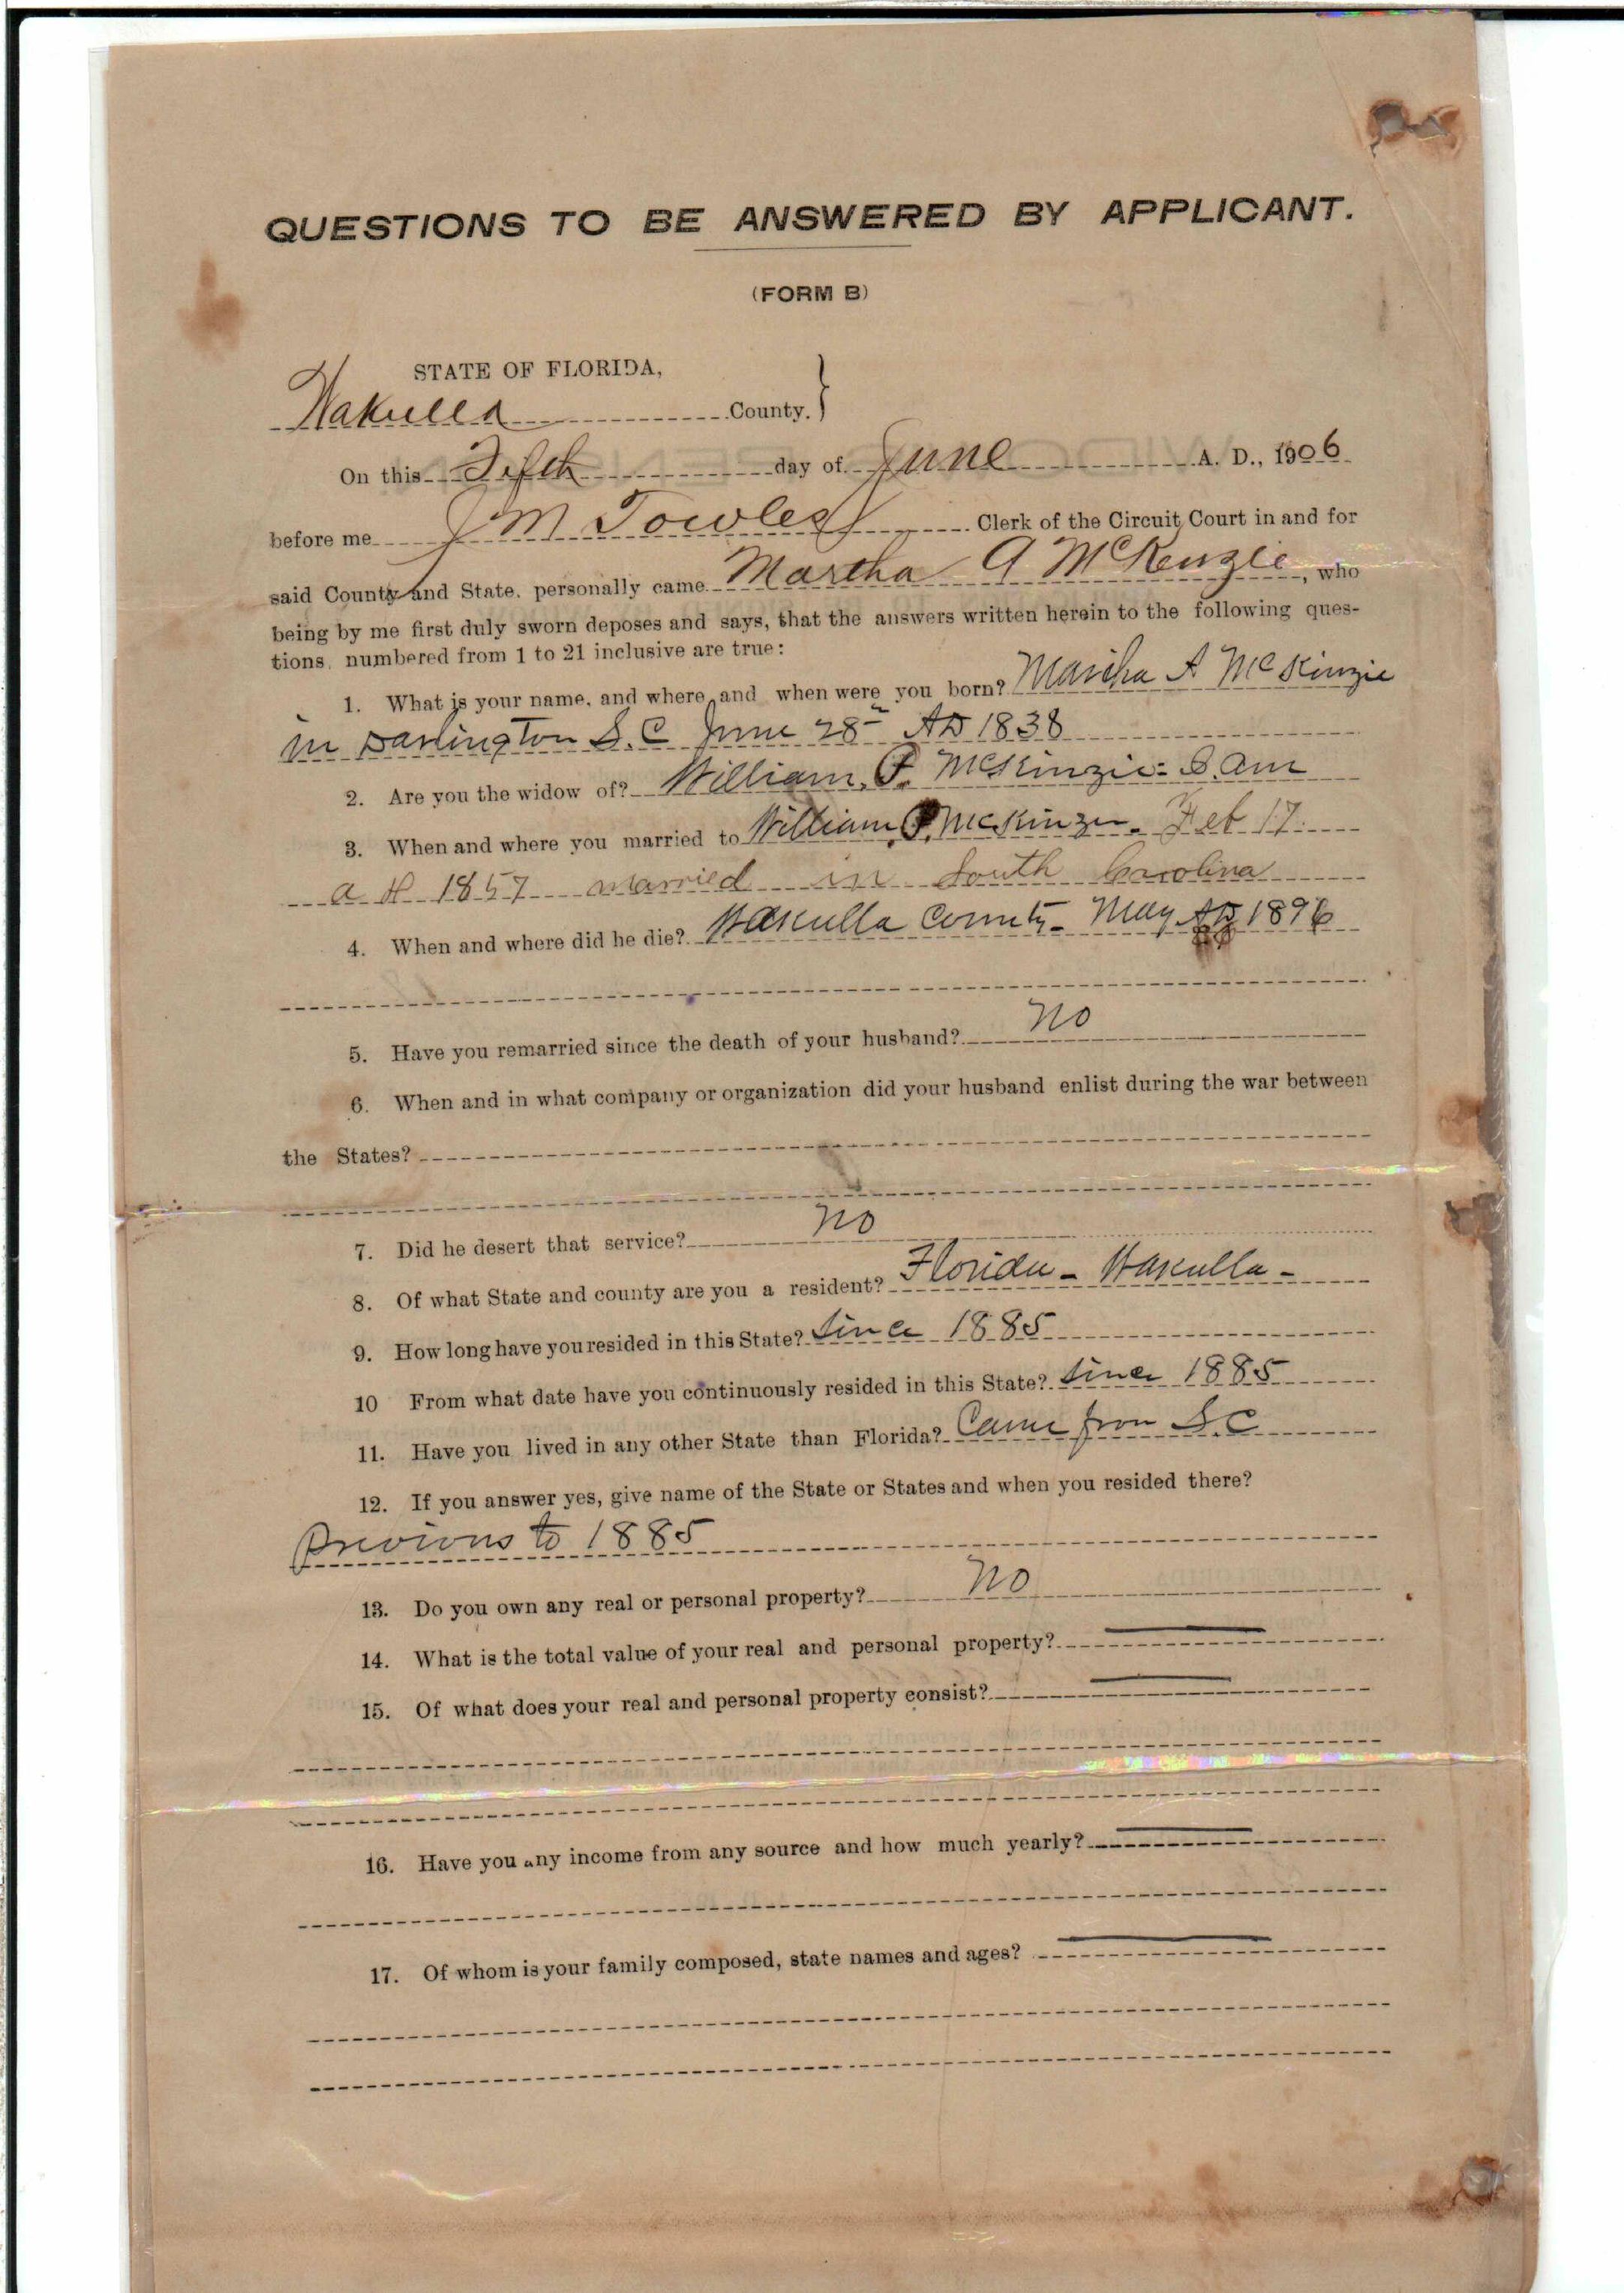 QUESTIONS TO BE ANSWERED BY APPLICANT.
(FORM B)
STATE OF FLORIDA,
Wakulla County. }
On this Fifth day of June A. D., 1906
before me J M Towles Clerk of the Circuit Court in and for
said County and State, personally came Martha A McKenzie, who
being by me first duly sworn deposes and says, that the answers written herein to the following ques-
tions, numbered from 1 to 21 inclusive are true:
1. What is your name, and where and when were you born? Martha A McKinzie
in Darlington S.C June 28 AD 1838
2. Are you the widow of? William. P. McKinzie. I am
3. When and where you married to William P. McKinzie. Feb 17.
a d 1857 married in South Carolina
4. When and where did he die? Wakulla County - May AD 1896
5. Have you remarried since the death of your husband? no
6. When and in what company or organization did your husband enlist during the war between
the States?
7. Did he desert that service? no
8. Of what State and county are you a resident? Florida - Wakulla -
9. How long have you resided in this State? Since 1885
10 From what date have you continuously resided in this State? Since 1885
11. Have you lived in any other State than Florida? Came from S.C
12. If you answer yes, give name of the State or States and when you resided there?
Previous to 1885
13. Do you own any real or personal property? no
14. What is the total value of your real and personal property?
15. Of what does your real and personal property consist?
16. Have you any income from any source and how much yearly?
17. Of whom is your family composed, state names and ages?